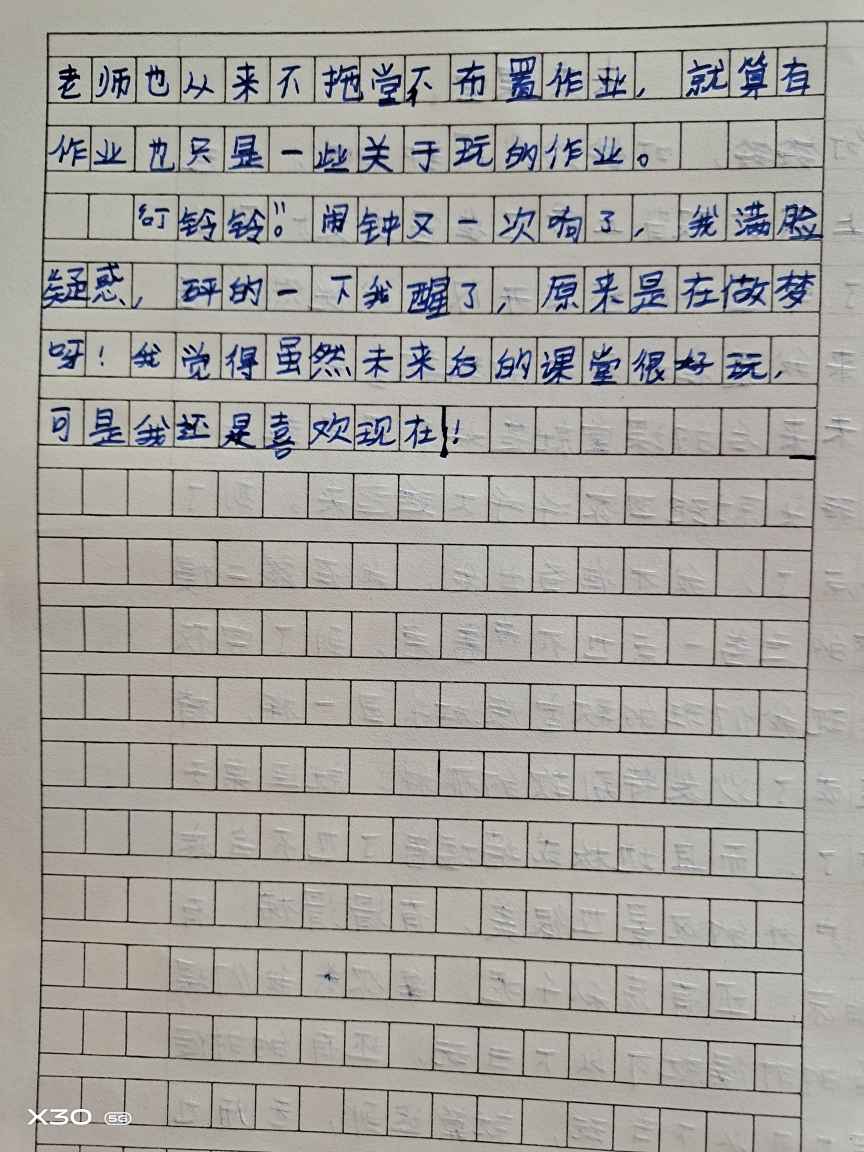 老师也从来不拖堂不布置作业，就算有
作业也只是一些关于玩的作业。
叮铃铃”。闹钟又一次响了，我满脸
疑惑，砰的一下我醒了，原来是在做梦
呀！我觉得虽然未来后的课堂很好玩，
可是我还是喜欢现在！
X30 5G